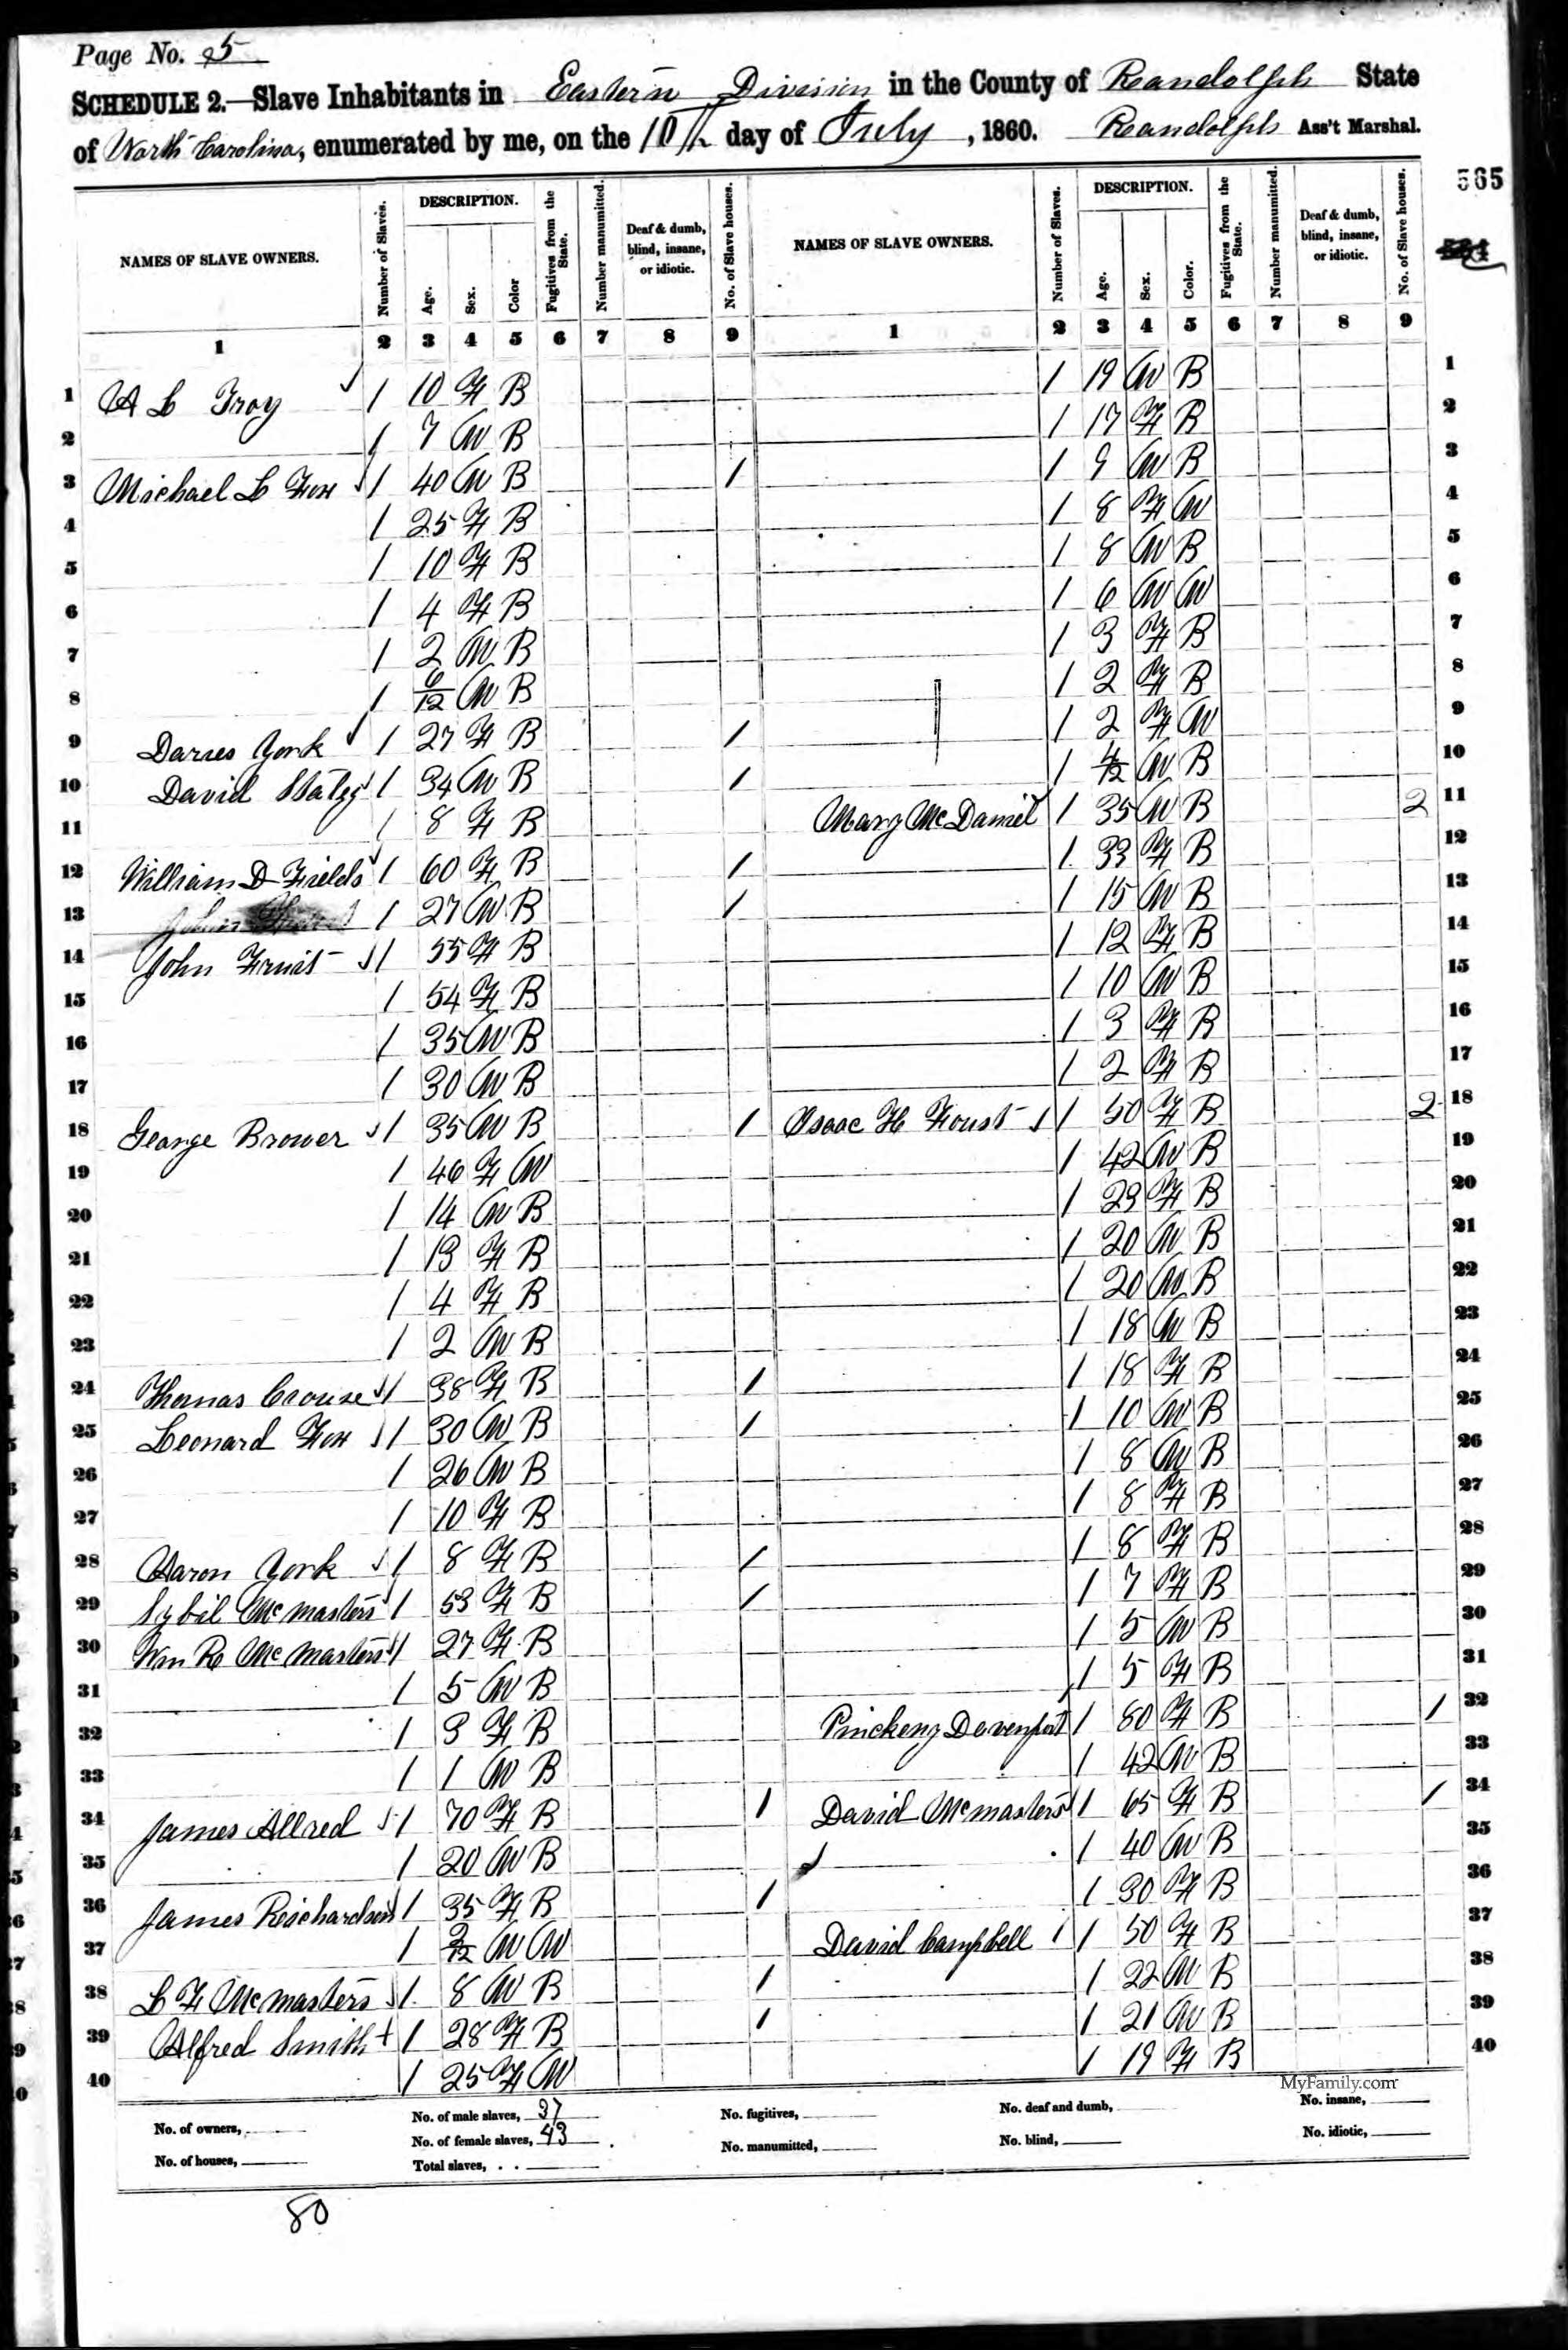 Page No. 25
SCHEDULE 2.—Slave Inhabitants in Eastern Division in the County of Randolph State
of North Carolina, enumerated by me, on the 10th day of July, 1860. Randolph Ass't Marshal.
565
NAMES OF SLAVE OWNERS. Number of Slaves. DESCRIPTION. Age. Sex. Color Fugitives from the State. Number manumitted. Deaf & dumb, blind, insane, or idiotic. No. of Slave houses. NAMES OF SLAVE OWNERS. Number of Slaves. DESCRIPTION. Age. Sex. Color. Fugitives from the State. Number manumitted. Deaf & dumb, blind, insane, or idiotic. No. of Slave houses.
1 2 3 4 5 6 7 8 9 1 2 3 4 5 6 7 8 9
1 A L Troy 1 10 F B 1 19 M B 1
2 1 7 M B 1 17 F B 2
3 Michael L Fox 1 40 M B 1 1 9 M B 3
4 1 25 F B 1 8 F M 4
5 1 10 F B 1 8 M B 5
6 1 4 F B 1 6 M M 6
7 1 2 M B 1 3 F B 7
8 1 6/12 M B 1 2 F B 8
9 Darius York 1 27 F B 1 1 2 F M 9
10 David 1 34 M B 1 1 4/12 M B 10
11 1 8 F B Mary McDaniel 1 35 M B 2 11
12 William D Fields 1 60 F B 1 1 33 F B 12
13 1 27 M B 1 1 15 M B 13
14 John Fruit 1 55 F B 1 12 F B 14
15 1 54 F B 1 10 M B 15
16 1 35 M B 1 3 F B 16
17 1 30 M B 1 2 F B 17
18 George Brower 1 35 M B 1 Isaac H Foust 1 50 F B 2 18
19 1 46 F M 1 42 M B 19
20 1 14 M B 1 23 F B 20
21 1 13 F B 1 20 M B 21
22 1 4 F B 1 20 M B 22
23 1 2 M B 1 18 M B 23
24 Thomas Crouse 1 38 F B 1 1 18 F B 24
25 Leonard Fox 1 30 M B 1 1 10 M B 25
26 1 26 M B 1 8 M B 26
27 1 10 F B 1 8 F B 27
28 Aaron York 1 8 F B 1 1 8 F B 28
29 Sybil McMasters 1 53 F B 1 1 7 F B 29
30 Wm R McMasters 1 27 F B 1 5 M B 30
31 1 5 M B 1 5 F B 31
32 1 3 F B Pinckeny Davenport 1 60 F B 1 32
33 1 1 M B 1 42 M B 33
34 James Allred 1 70 F B 1 David McMasters 1 65 F B 1 34
35 1 20 M B 1 40 M B 35
36 James Reichardson 1 35 F B 1 1 30 F B 36
37 1 M M David Campbell 1 50 F B 37
38 L F McMasters 1 8 M B 1 1 22 M B 38
39 Alfred Smith + 1 28 F B 1 1 21 M B 39
40 1 25 F M 1 19 F B 40
MyFamily.com
No. of owners, No. of male slaves, 37 No. fugitives, No. deaf and dumb, No. insane,
No. of houses, No. of female slaves, 43 No. manumitted, No. blind, No. idiotic,
Total slaves, . .
80